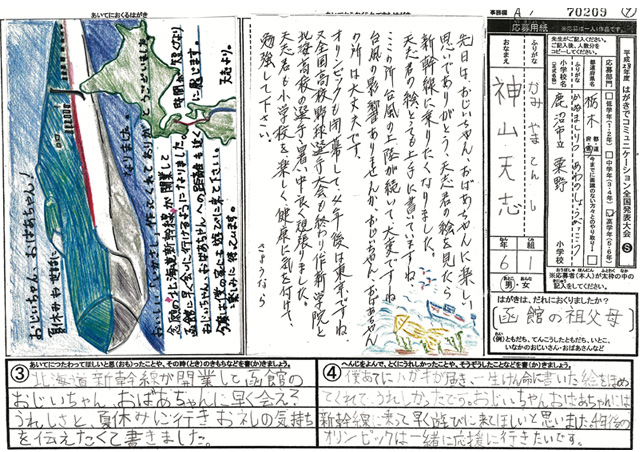 あいてにおくるはがき
事務局
70209
応募用紙
平成28年度 はがきでコミュニケーション全国発表大会
先生がご記入ください。
応募部門
低学年(1・2年)
中学年(3・4年)
高学年(5・6年)
都道府県名
栃木
小学校名
鹿沼市立 粟野
小学校
おなまえ
ふりがな
かみやまてんし
神山天志
6年
1組
男・女
はがきは、だれにおくりましたか?
函館の祖父母
(例)ともだち、てんこうしたともだち、いとこ、
いなかのおじいさん・おばあさんなど
先日は、おじいちゃん、おばあちゃんに楽しい
思い出ありがとう。天志君の絵を見たら
新幹線に乗りたくなりました。
天志君の絵とても上手に書いてますね。
ここの所、台風の上陸が続いて大変ですね。
台風の影響ありませんか。おじいちゃん、おばあちゃん
の所は大丈夫です。
オリンピックも閉幕して、4年後は東京ですね。
又、全国高校野球選手大会も終り、作新学院と
北海高校の選手、暑い中良く頑張りました。
天志君も小学校を楽しく、健康に気を付け、
勉強して下さい。
さようなら
おじいちゃん、おばあちゃん!
夏休みお世話に
なりました。
おいしい
作ってくれてありがとうございました。
念願の北海道新幹線が開業して
函館に早く会いに行けるようになりました。
おじいちゃん、おばあちゃんへの距離も近く
時間も短くなり
に感じます。
今度は僕の家にも遊びに来て下さい。
楽しみに待ってます。
天志より。
③ あいてにつたわってほしいと思(おも)ったことや、その時(とき)のきもちなどを書(か)きましょう。
北海道新幹線が開業して函館の
おじいちゃん、おばあちゃんに早く会える
うれしさと、夏休みに行きお礼の気持ち
を伝えたくて書きました。
④ へんじをよんで、とくにうれしかったことや、そうぞうしたことなどを書(か)きましょう。
僕あてにハガキが届き、一生けん命に書いた絵をほめ
てくれて、うれしかったです。おじいちゃん、おばあちゃんには
新幹線に乗って早く遊びに来てほしいと思いました。4年後の
オリンピックは一緒に応援に行きたいです。